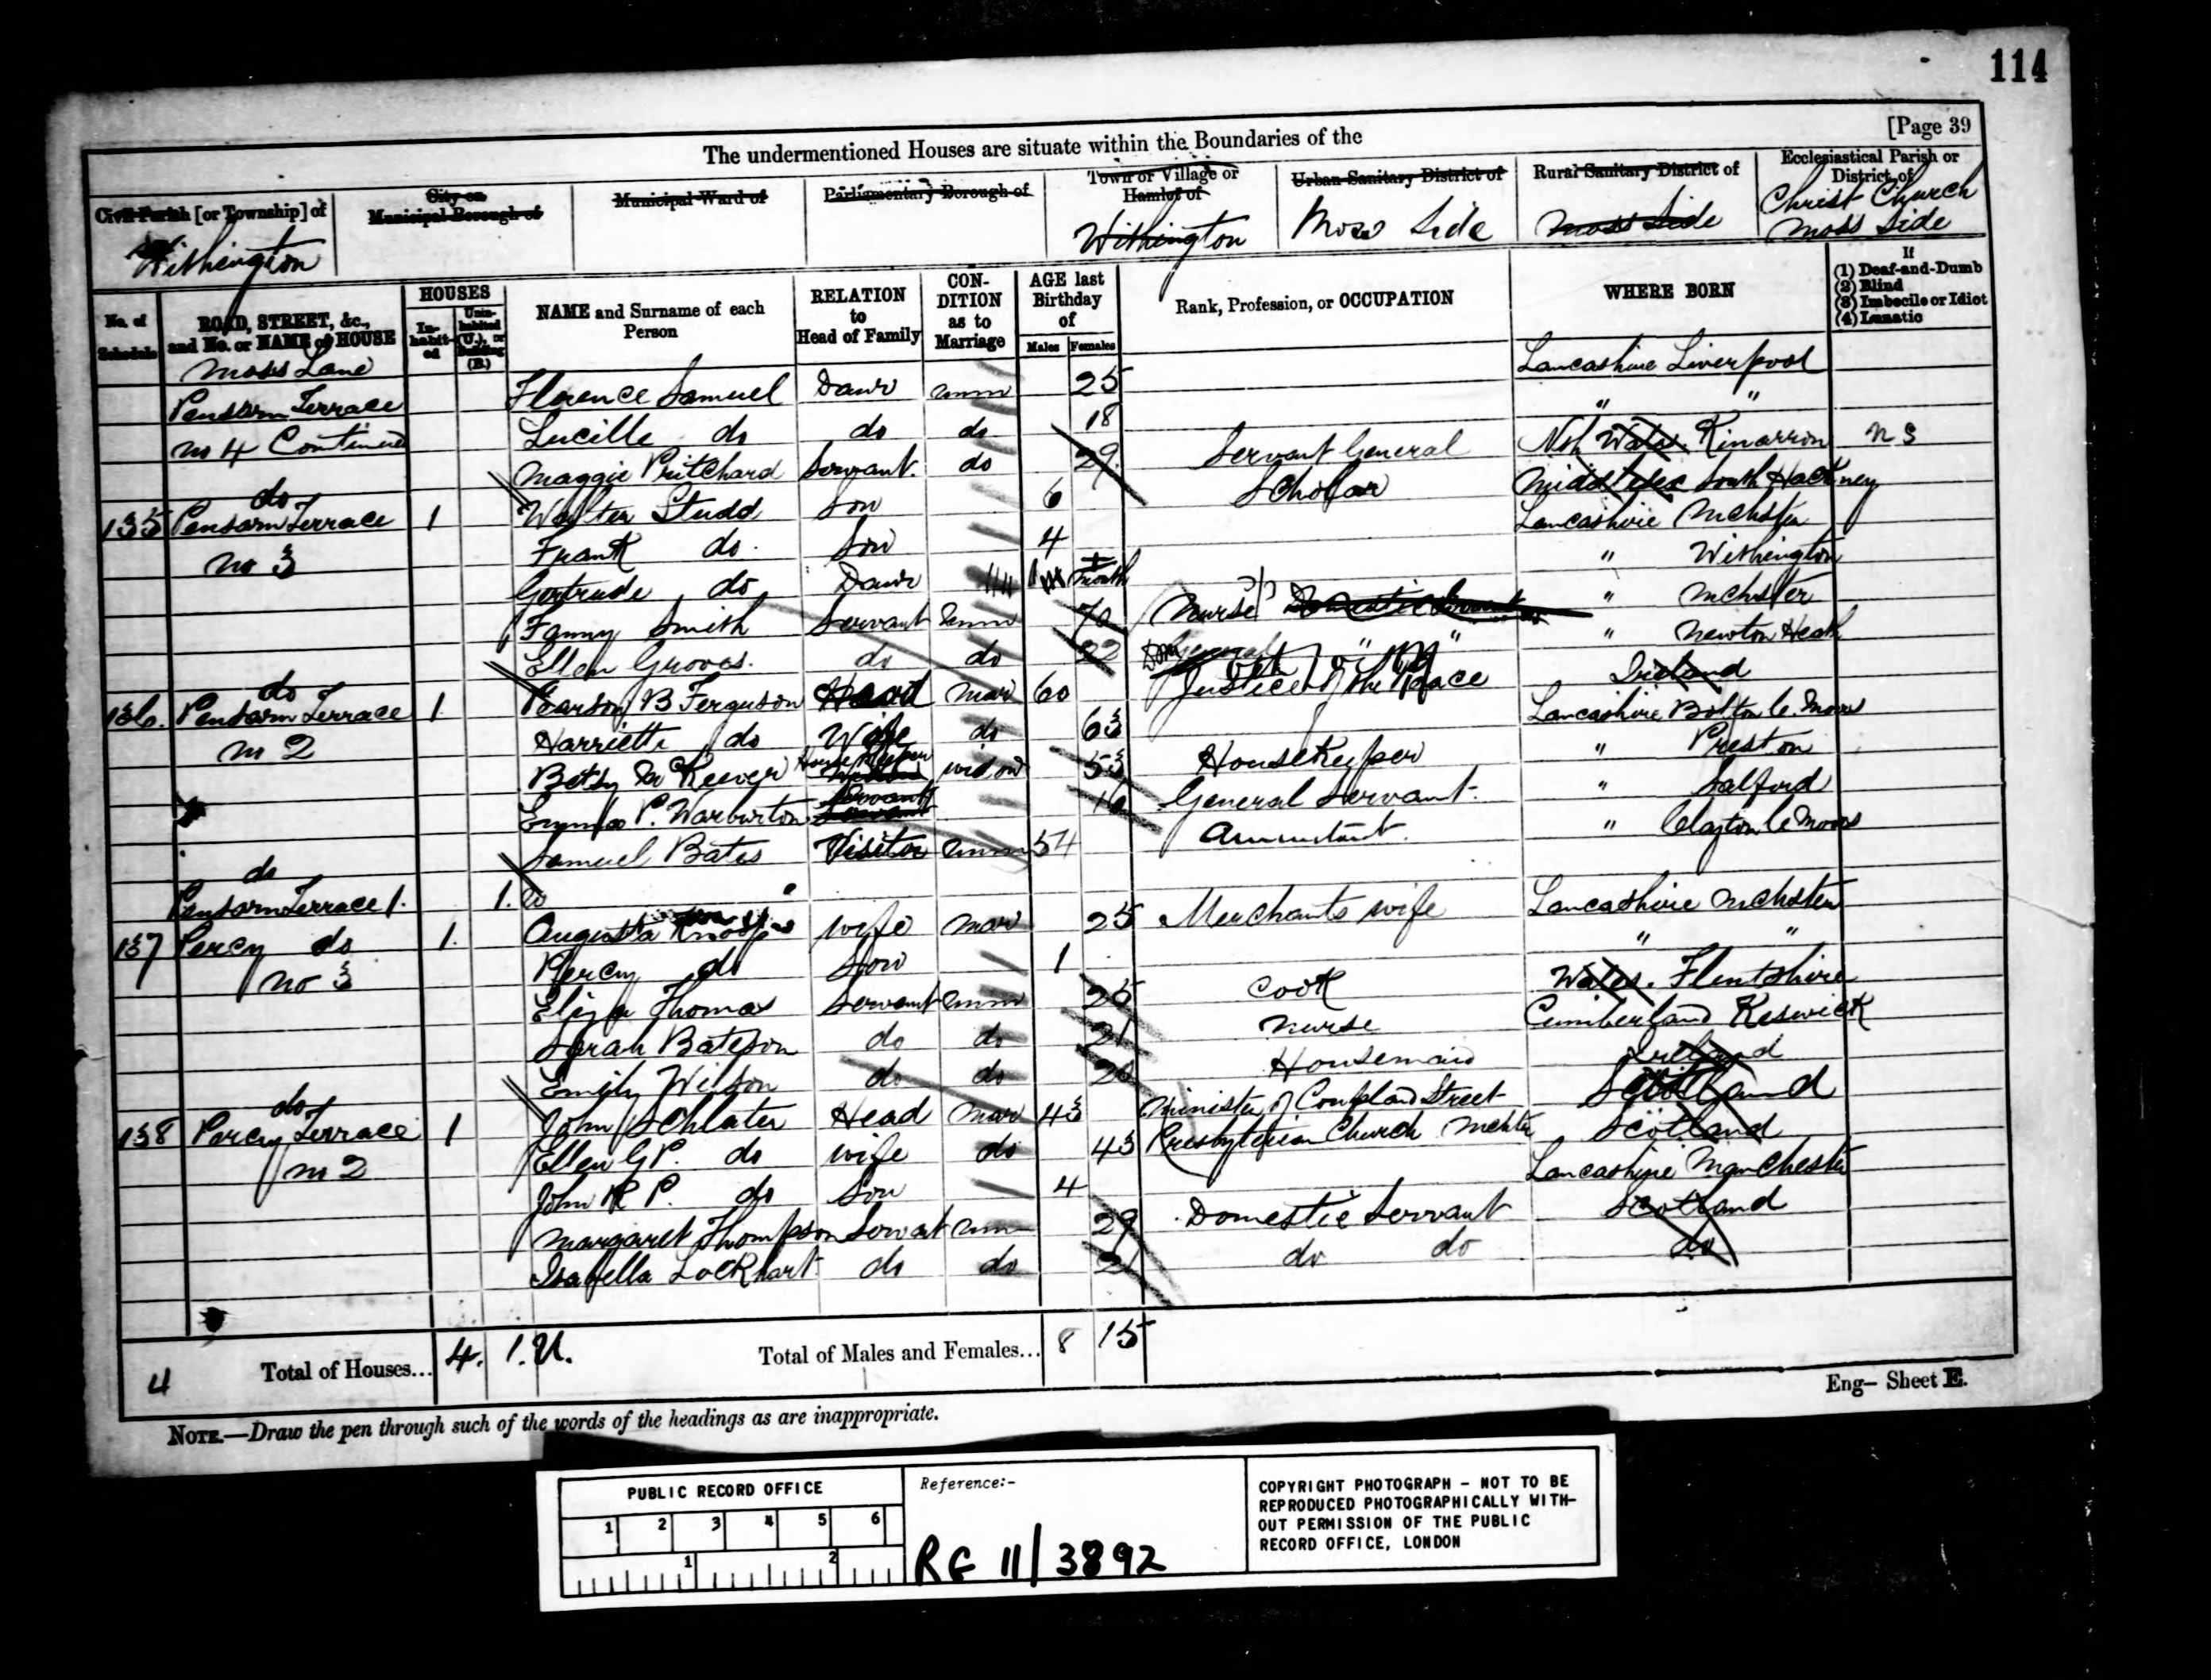 114
[Page 39
The undermentioned Houses are situate within the Boundaries of the
Civil Parish [or Township] of
City or Municipal Borough of
Municipal Ward of
Parliamentary Borough of
Town or Village or Hamlet of
Urban Sanitary District of
Rural Sanitary District of
Ecclesiastical Parish or District of
Withington
Withington
Moss Side
Moss Side
Christ Church Moss Side
No. of Schedule
ROAD, STREET, &c., and No. or NAME of HOUSE
HOUSES
In-habit-ed
Unin-habited (U.), or Building (B.)
NAME and Surname of each Person
RELATION to Head of Family
CON-DITION as to Marriage
AGE last Birthday of
Males
Females
Rank, Profession, or OCCUPATION
WHERE BORN
If
(1) Deaf-and-Dumb
(2) Blind
(3) Imbecile or Idiot
(4) Lunatic
Moss Lane
Pensarn Terrace Florence Samuel Daur unm 25 Lancashire Liverpool
no 4 Continued Lucille do do do 18 " "
Maggie Pritchard Servant. do 29 Servant General Nth Wales. NS
do
135 Pensarn Terrace 1 Walter Studd Son 6 Scholar Middlesex South Hackney
no 3 Frank do. Son 4 Lancashire Mchster
Gertrude do Daur month " Withington
Fanny Smith Servant unm Nurse Domestic Servant " Mchster
Ellen Groves. do do 22 General " " " Newton Heath
do
136. Pensarn Terrace 1 Pearson B Ferguson Head mar 60 Justice of the Peace Ireland
no 2 Harriette do Wife do 63 Lancashire Bolton le Moors
Betsy Mc Keever House Keeper widow 53 Housekeeper " Preston
Emma P. Warburton Servant 16 General Servant. " Salford
Samuel Bates Visitor unm 54 " Clayton le Moors
do
Pensarn Terrace 1. 1. U
137 Percy do 1. Augusta Knoop wife mar 25 Merchants wife Lancashire Mchster
no 3 Percy do Son 1 " "
Eliza Thomas Servant unm 25 Cook Wales. Flintshire
Sarah Bateson do do 21 Nurse Cumberland Keswick
Emily Wilson do do Housemaid Ireland
do
138 Percy Terrace 1 John Schlater Head mar 43 Minister of Coupland Street Scotland
no 2 Ellen G P. do wife do 43 Presbyterian Church Mchtr Scotland
John R P. do Son 4 Lancashire Manchester
Margaret Thompson Servant unm 29 Domestic Servant Scotland
Isabella Lockhart do do 21 do do do
4 Total of Houses... 4. 1.U. Total of Males and Females... 8 15
Eng– Sheet E.
NOTE.—Draw the pen through such of the words of the headings as are inappropriate.
PUBLIC RECORD OFFICE
1 2 3 4 5 6
1 2
Reference:-
RG 11/3892
COPYRIGHT PHOTOGRAPH - NOT TO BE
REPRODUCED PHOTOGRAPHICALLY WITH-
OUT PERMISSION OF THE PUBLIC
RECORD OFFICE, LONDON